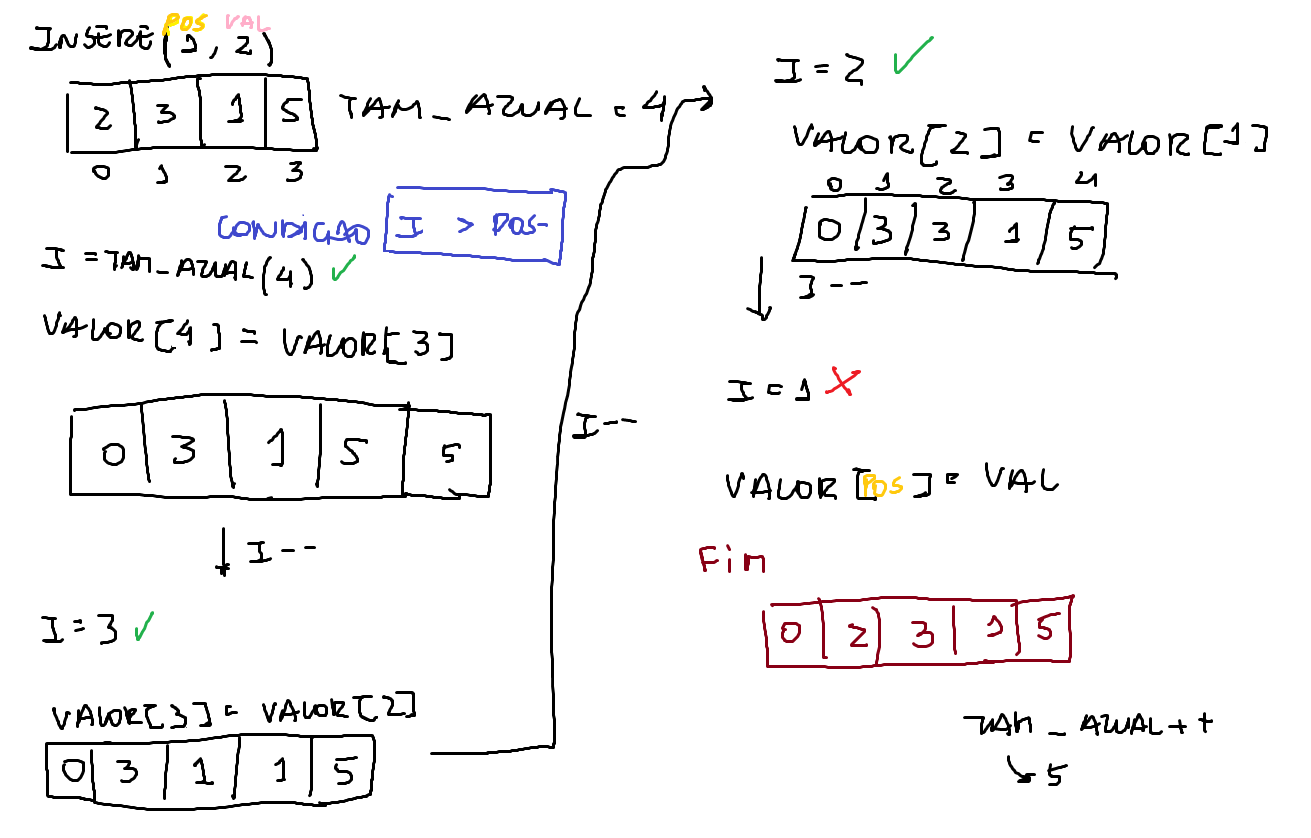 POS VAL
INSERE(1, 2)
2 3 1 5
0 1 2 3
TAM_ATUAL = 4
CONDIÇAO I > POS-
I = TAM_ATUAL(4) ✓
VALOR[4] = VALOR[3]
0 3 1 5 5
↓ I--
I = 3 ✓
VALOR[3] = VALOR[2]
0 3 1 1 5
I--
I = 2 ✓
VALOR[2] = VALOR[1]
0 1 2 3 4
0 3 3 1 5
↓ I--
I = 1 X
VALOR[POS] = VAL
Fim
0 2 3 1 5
TAM_ATUAL++
↳ 5